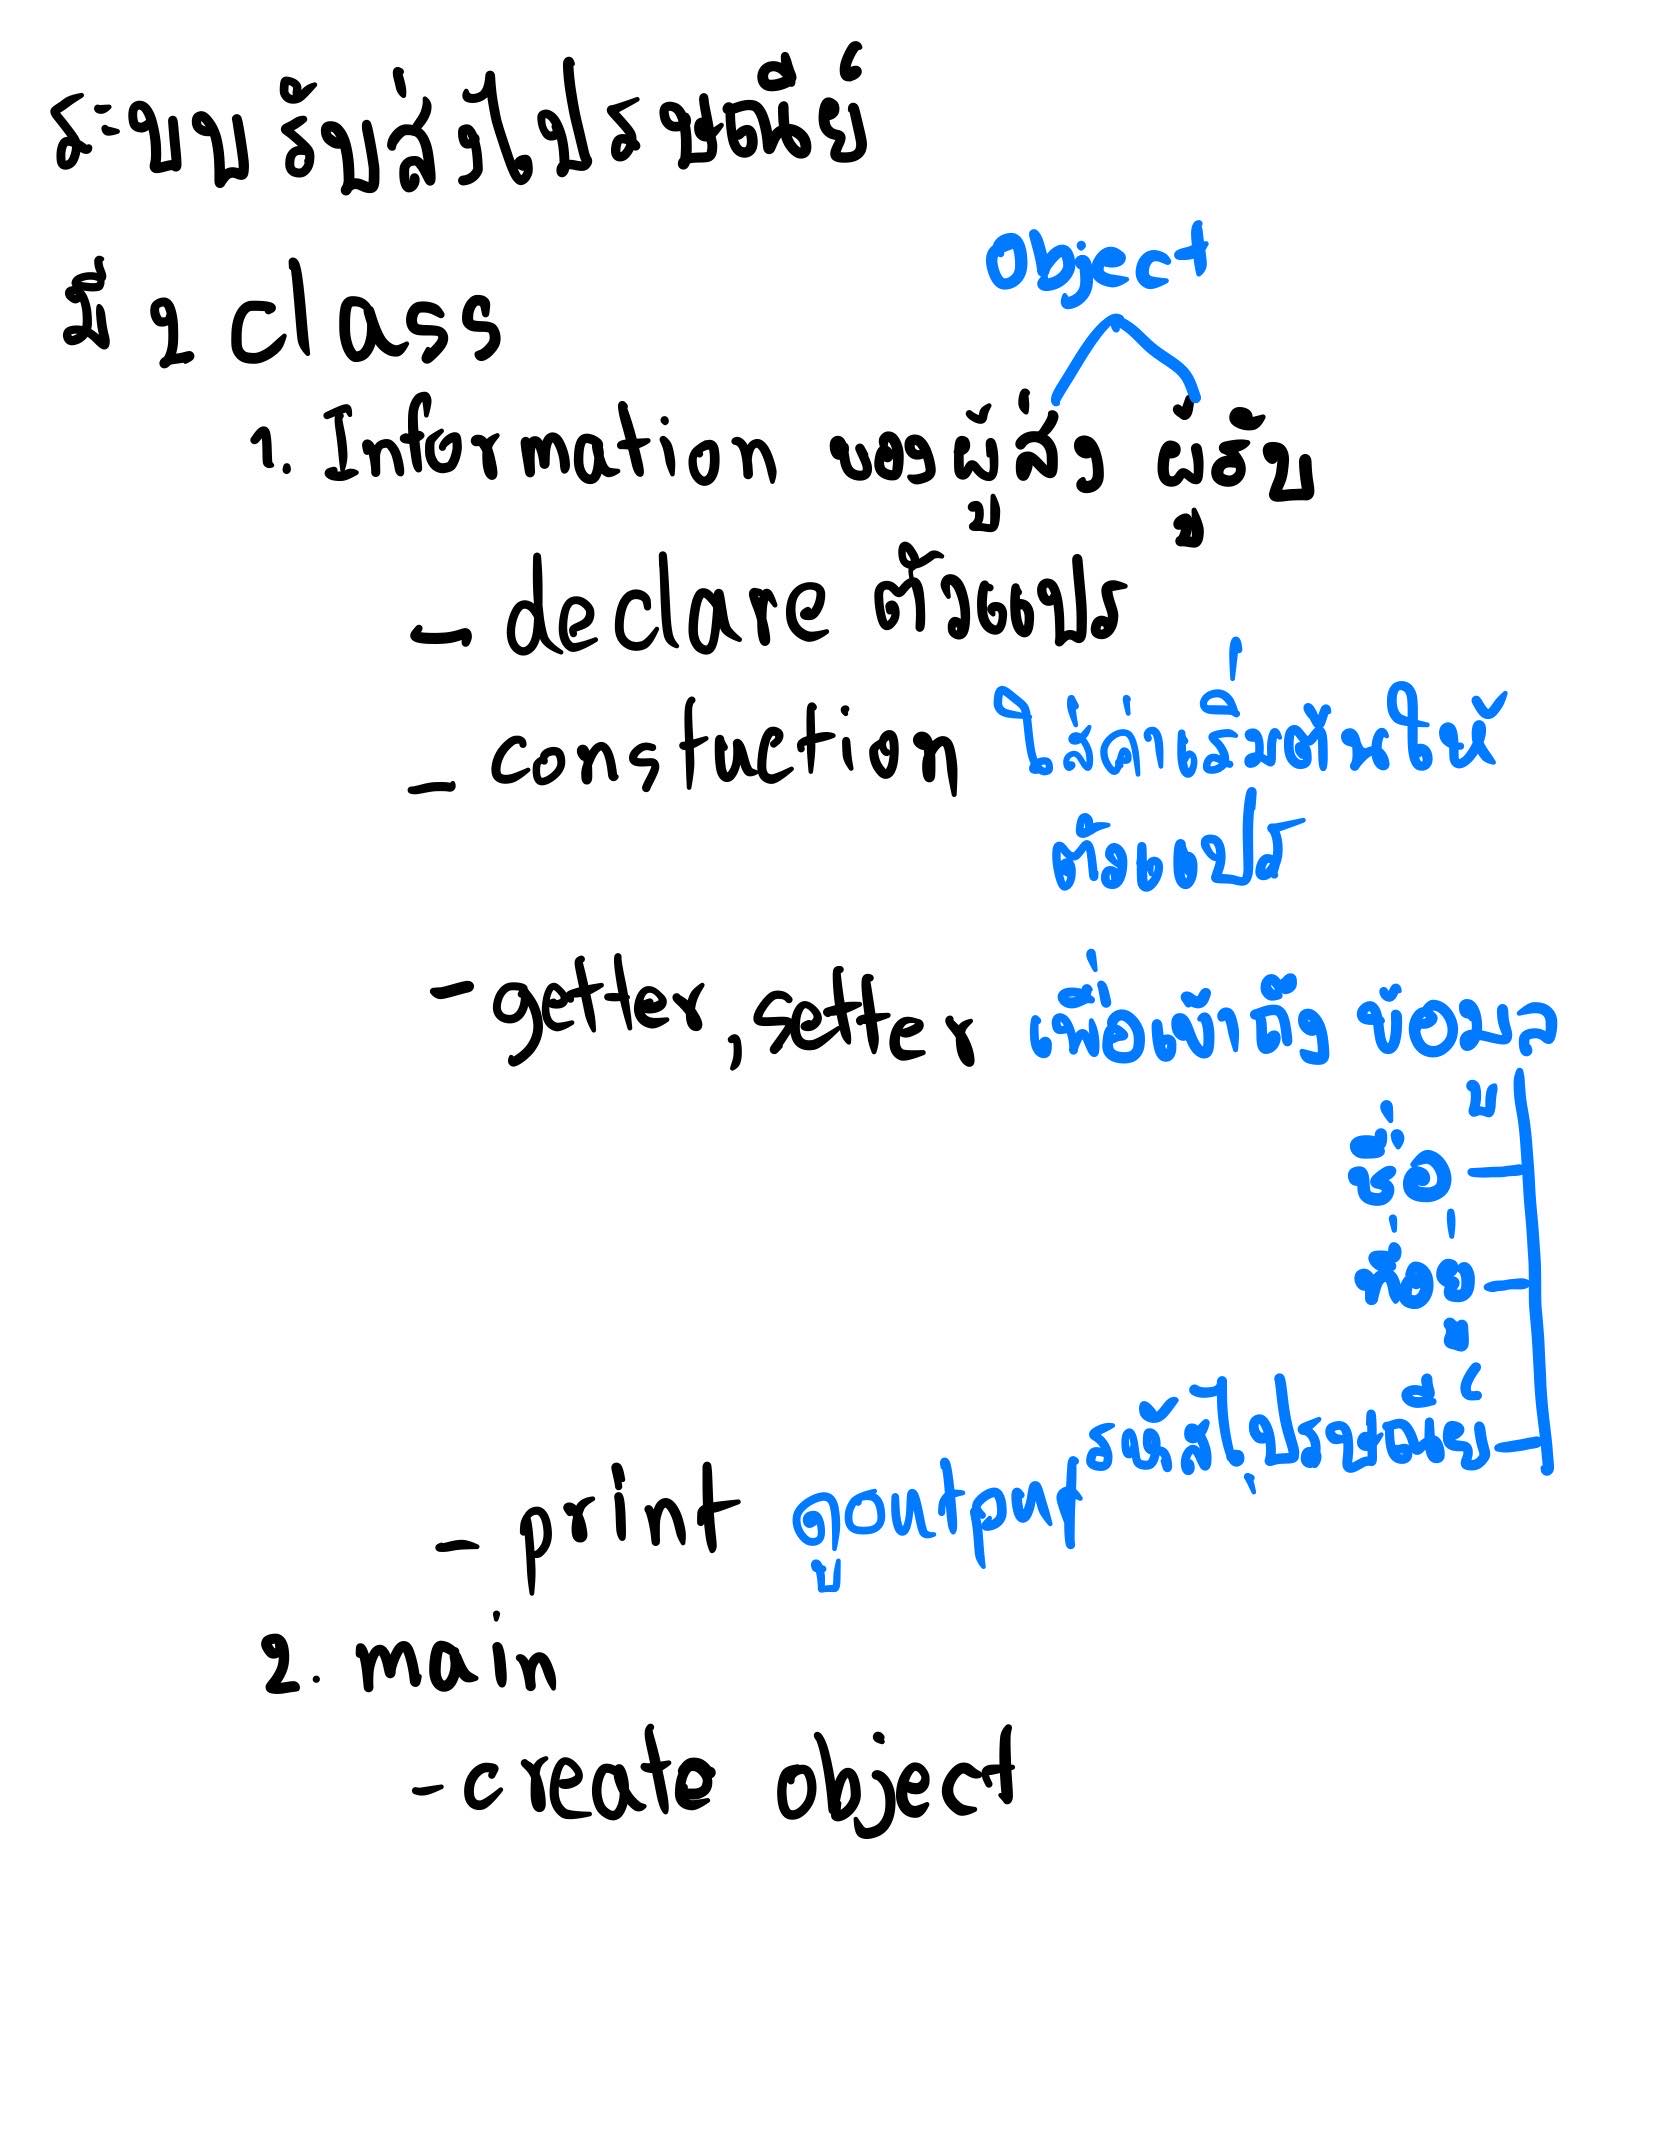 ระบบรับส่งไปรษณีย์
object
มี 2 class
1. Information ของผู้ส่ง ผู้รับ
- declare ตัวแปร
- constuction ใส่ค่าเริ่มต้นให้
ตัวแปร
- getter, setter เพื่อเข้าถึง ข้อมูล
ชื่อ
ที่อยู่
รหัสไปรษณีย์
- print ดู output
2. main
- create object